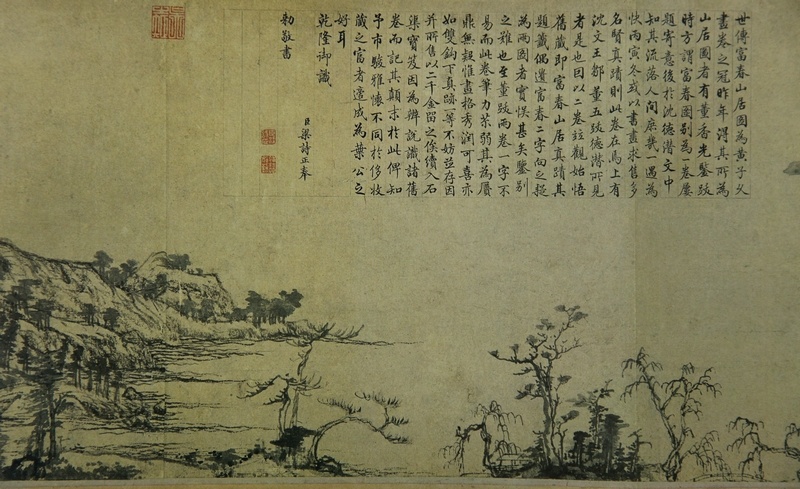 世傳富春山居圖為黃子久
畫卷之冠昨年得其所為
山居圖者有董香光鑒跋
時方謂富春圖別為一卷屢
題寄意後於沈德潛文中
知其流落人間庶幾一遇為
快丙寅冬或以書畫求售多
名賢真蹟則此卷在焉上有
沈文王鄒董五跋德潛所見
者是也因以二卷並觀始悟
舊藏即富春山居真蹟其
題籤偶遺富春二字向之疑
為兩圖者實悮甚矣鑒別
之難也至董跋兩卷一字不
易而此卷筆力苶弱其為贗
鼎無疑惟畫格秀潤可喜亦
如雙鈎下真跡一等不妨並存因
并所售以二千金留之俟續入石
渠寶笈因為辨說識諸舊
卷而記其顛末於此俾知
予市駿雅懷不同於侈收
藏之富者適成為葉公之
好耳
乾隆御識
臣梁詩正奉
勅敬書